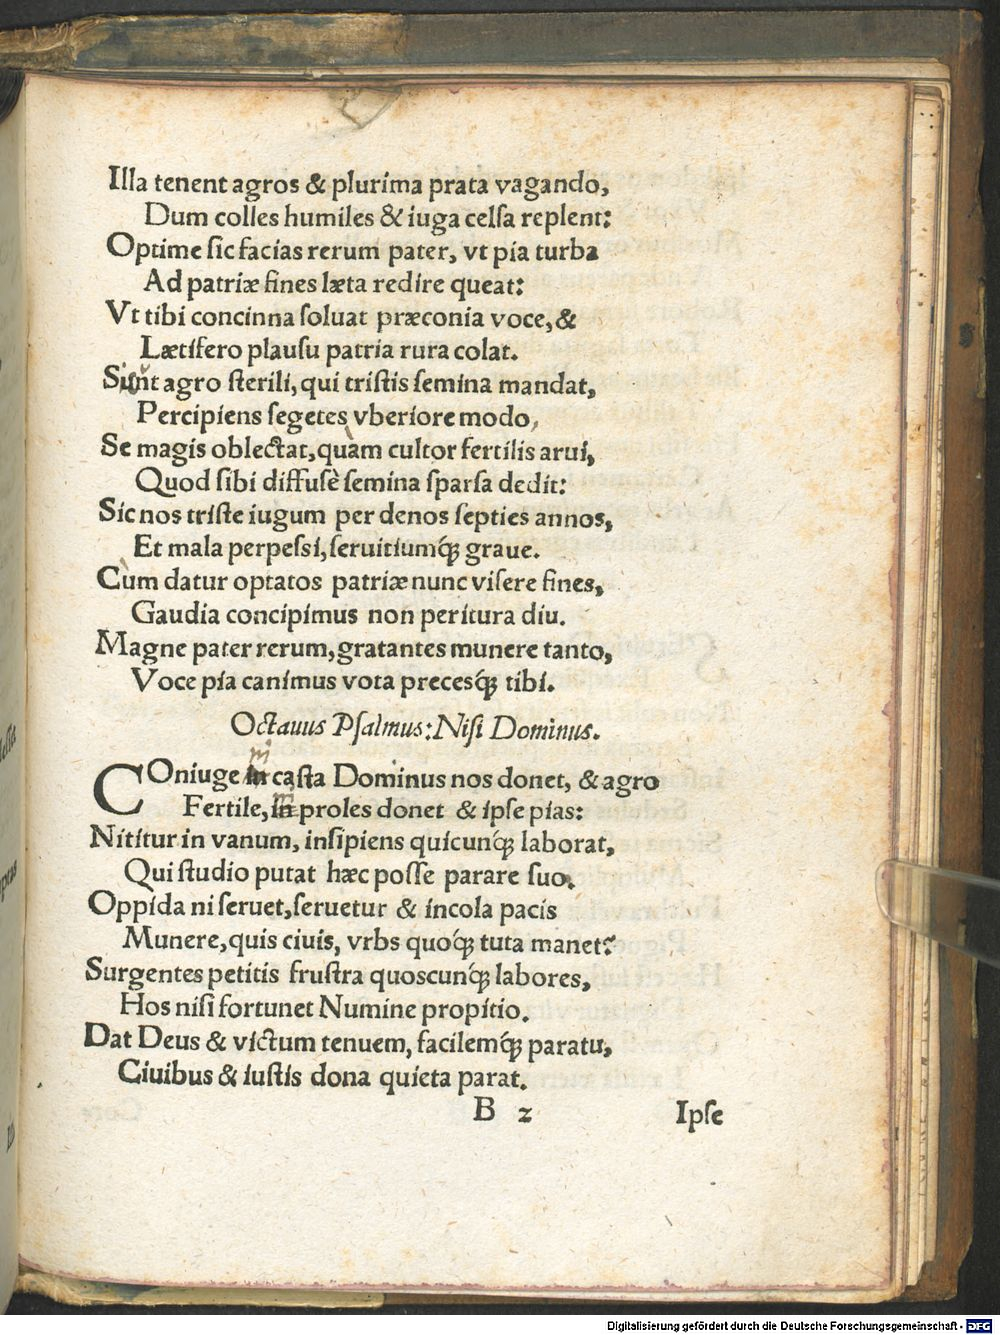 Illa tenent agros & plurima prata vagando,
Dum colles humiles & iuga celſa replent:
Optime ſic facias rerum pater, vt pia turba
Ad patriæ fines læta redire queat:
Vt tibi concinna ſoluat præconia voce, &
Lætifero plauſu patria rura colat.
agro ſterili, qui triſtis ſemina mandat,
Percipiens ſegetes vberiore modo,
Se magis oblectat, quàm cultor fertilis arui,
Quod ſibi diffuſè ſemina ſparſa dedit:
Sic nos triſte iugum per denos ſepties annos,
Et mala perpeſſi, ſeruitiumq́; graue.
Cùm datur optatos patriæ nunc viſere fines,
Gaudia concipimus non peritura diu.
Magne pater rerum, gratantes munere tanto,
Voce pia canimus vota precesq́; tibi.
Octauus Pſalmus: Niſi Dominus.
COniuge caſta Dominus nos donet, & agro
Fertile, proles donet & ipſe pias:
Nititur in vanum, inſipiens quicunq́; laborat,
Qui ſtudio putat hæc poſſe parare ſuo.
Oppida ni ſeruet, ſeruetur & incola pacis
Munere, quis ciuis, vrbs quoq́; tuta manet?
Surgentes petitis fruſtra quoscunq́; labores,
Hos niſi fortunet Numine propitio.
Dat Deus & victum tenuem, facilemq́; paratu,
Ciuibus & iuſtis dona quieta parat.
B 2 Ipſe
Digitalisierung gefördert durch die Deutsche Forschungsgemeinschaft - DFG